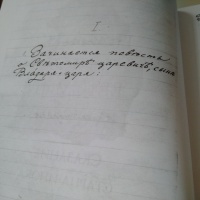 I
Зачинается повесть
о Свѣтомирѣ царевичѣ, сынѣ
Владаря-царя: